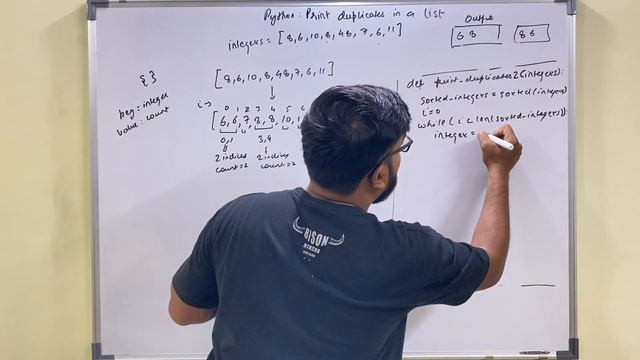 Python: Print duplicates in a list
integers = [8,6,10,8,48,7,6,11]
Output
6 8
8 6
{ }
key = integer
value: count
[8,6,10,8,48,7,6,11]
i →
0 1 2 3 4 5 6
[6,6,7,8,8,10,1
0,1
3,4
2 indices
count=2
2 indices
count=2
def print_duplicates2(integers):
sorted_integers = sorted(integers)
i=0
while(i < len(sorted_integers)):
integer =
BISON